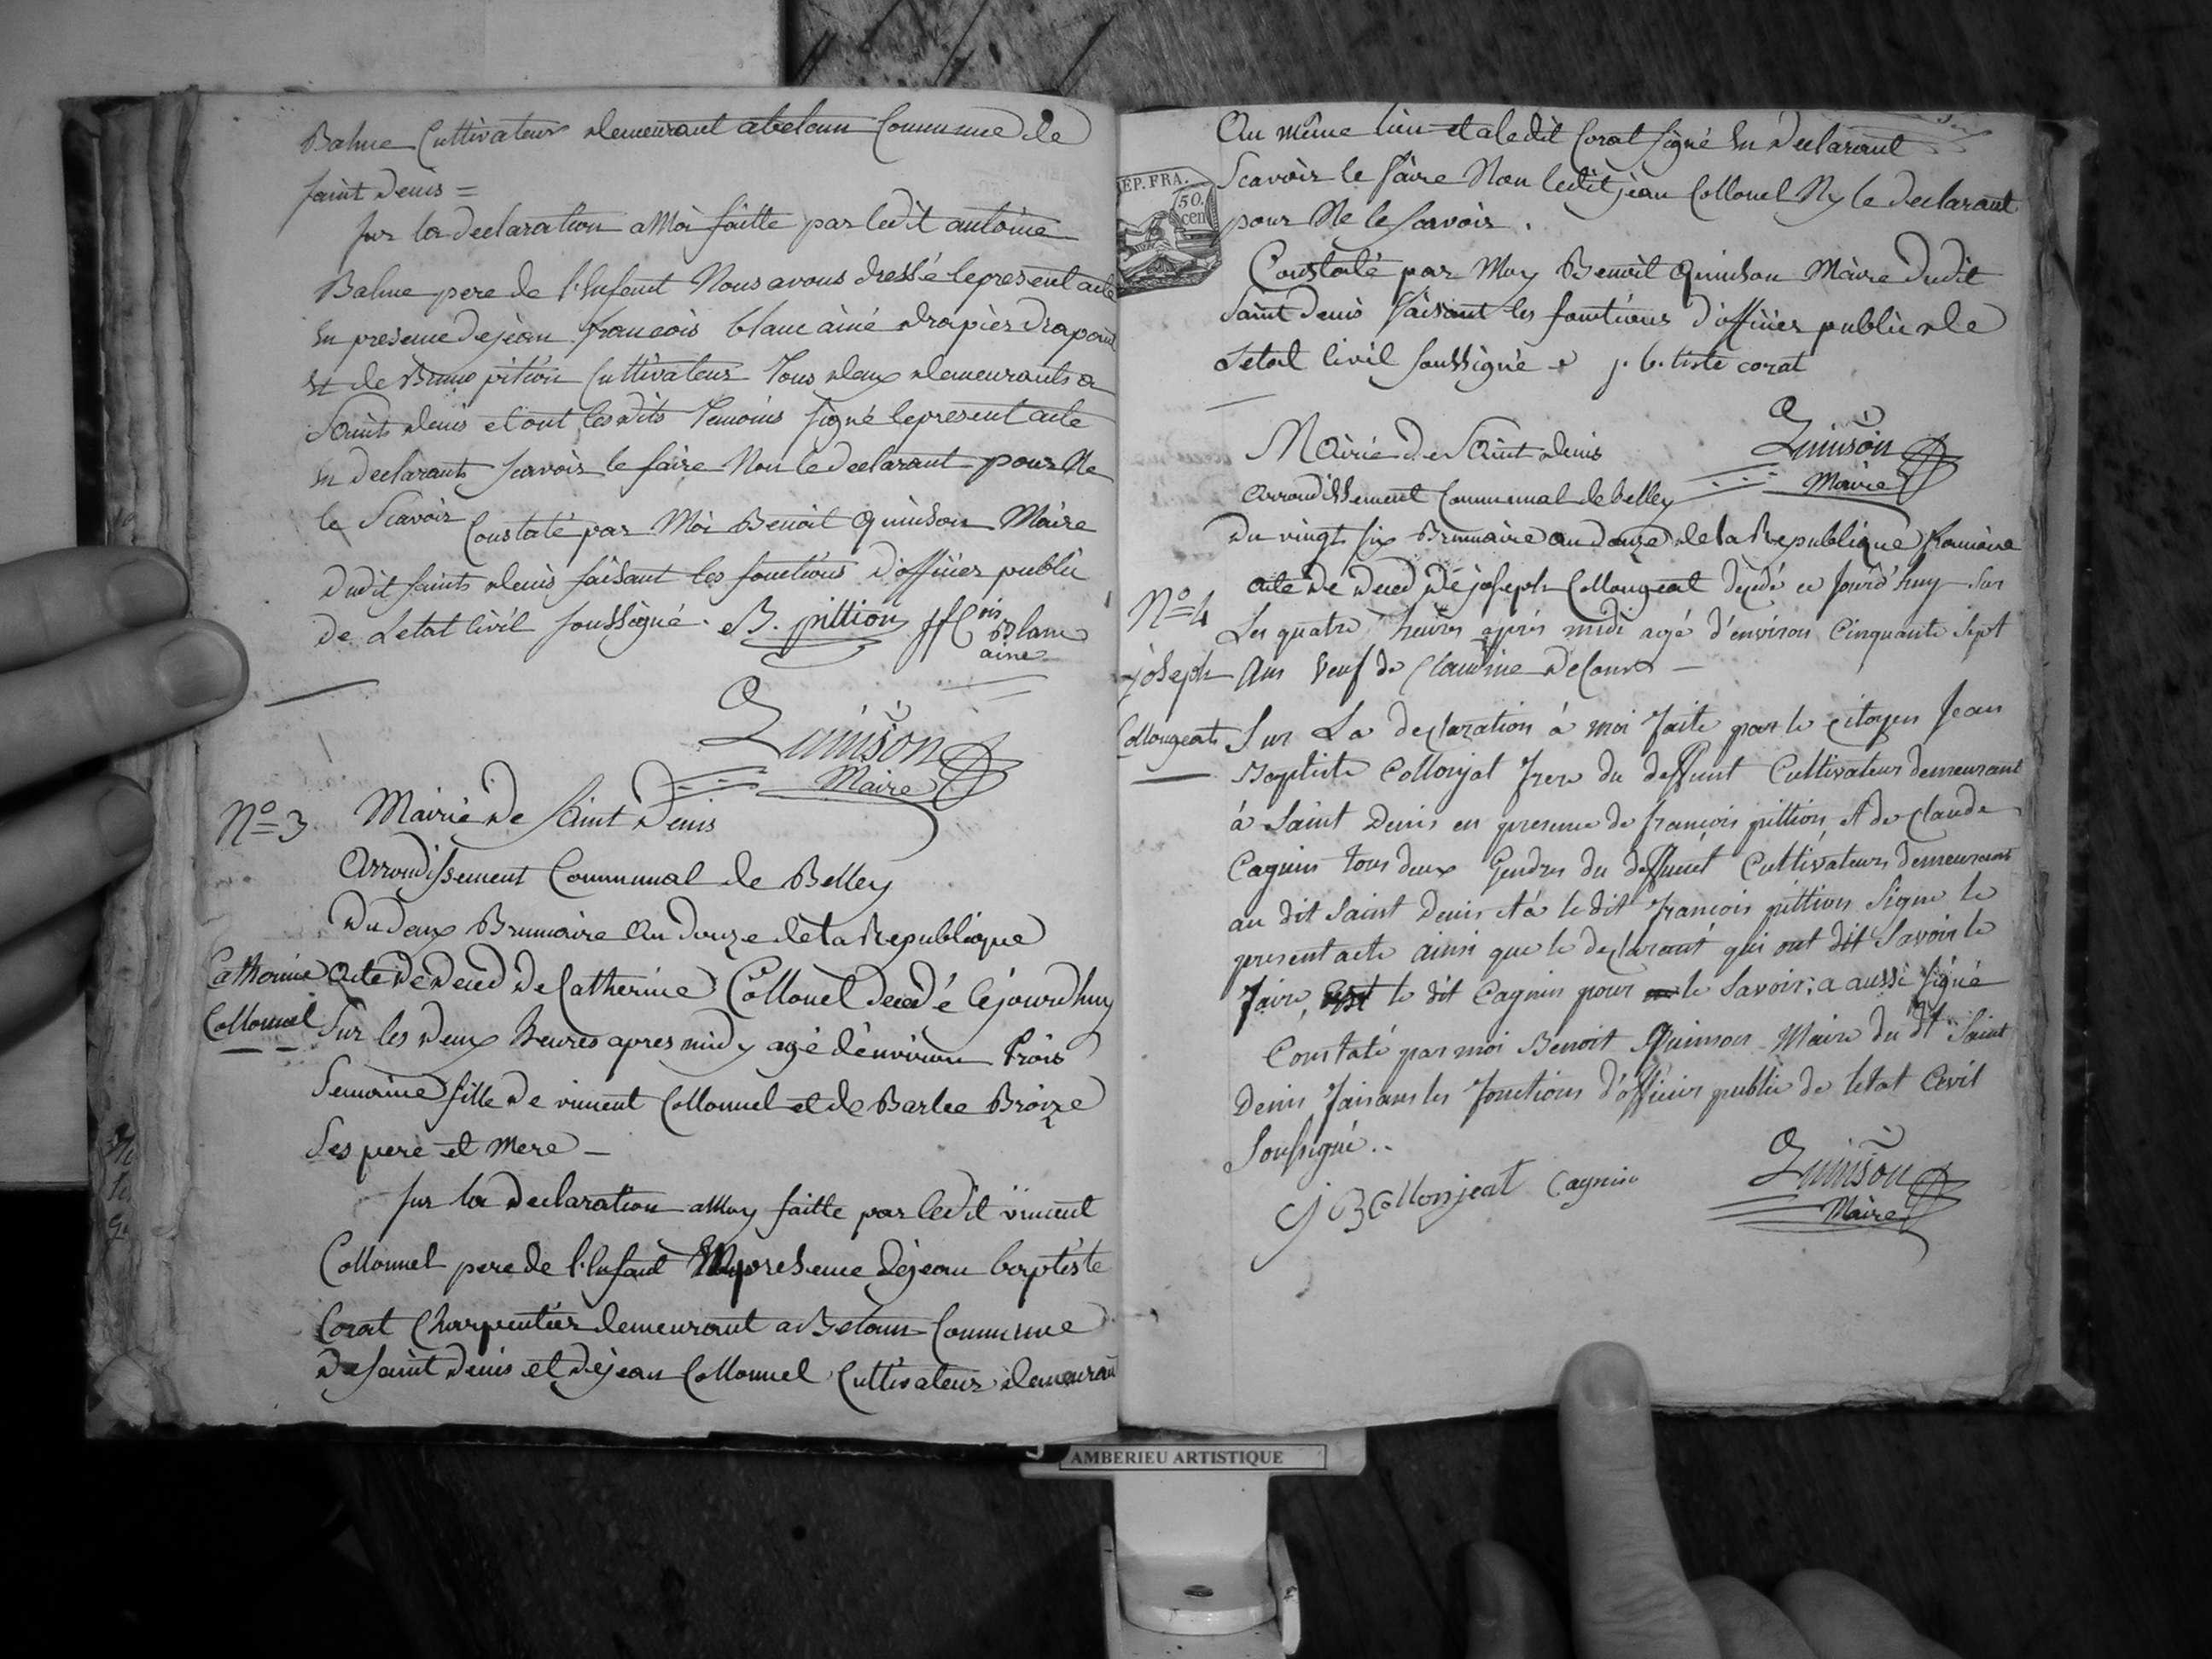 Balme Cultivateur demeurant abetam Commune de
saint denis =
sur la declaration a Moi faitte par ledit antoine
Balme pere de l'Enfant Nous avons dressé le present acte
En presence de jean francois blanc ainé drapier drapant
Et de Bruno pition Cultivateur tous deux demeurants a
Saints denis et ont lesdits temoins signé le present acte
En declarants scavoir le faire Non le declarant pour Ne
le Scavoir
Constaté par Moi Benoit Quinson Maire
dudit saints denis faisant les fonctions d'officier public
de Letat Civil soussigné. B. pittion jf Cois Blanc
ainé
Quinson
Maire
No 3
Mairie de Saint Denis
Arrondissement Communal de Belley
Du deux Brumaire An douze de la Republique
Catherine
Collonnel
Acte de deced de Catherine Collonel decedé cejourdhuy
Sur les deux heures apres midy agé d'environ trois
Semaine fille de vincent Collonnel et de Barbe Broize
Ses pere et Mere —
sur la declaration a Moy faitte par ledit vincent
Collonnel pere de l'Enfant En presence de jean baptiste
Corat Charpentier demeurant a Betam Commune
de saint denis et de jean Collonnel Cultivateur demeurant
Au même lieu et a ledit Corat signé En declarant
Scavoir le faire Non ledit jean Collonel Ny le declarant
pour Ne le scavoir.
RÉP. FRA.
50.
cen
Constaté par Moy Benoit Quinson Maire dudit
Saint denis faisant les fonctions d'officier public de
Letat Civil soussigné j. b. tiste corat
Quinson
Maire
Mairie de Saint denis
arrondissement Communal de belley
Du vingt six Brumaire an douze de la Republique francaise
No 4
joseph
Collongeat
acte de deced de joseph Collongeat decedé ce jourd'huy sur
Les quatre heures apres midi agé d'environ Cinquante sept
Ans veuf de Claudine
Sur La declaration à moi faite par le citoyen Jean
Baptiste Collonjat frere du deffunt Cultivateur demeurant
à Saint Denis en presence de francois pittion et de Claude
Cagnin tous deux Gendres du deffunt Cultivateurs demeurant
au dit Saint Denis et à le dit francois pittion Signe le
present acte ainsi que le declarant qui ont dit Savoir le
faire, le dit Cagnin pour le Savoir; a aussi signé
Constaté par moi Benoit Quinson Maire du dt Saint
Denis faisans les fonctions d'officier public de letat Civil
Soussigné..
J B Collonjeat Cagnin
Quinson
Maire
AMBERIEU ARTISTIQUE